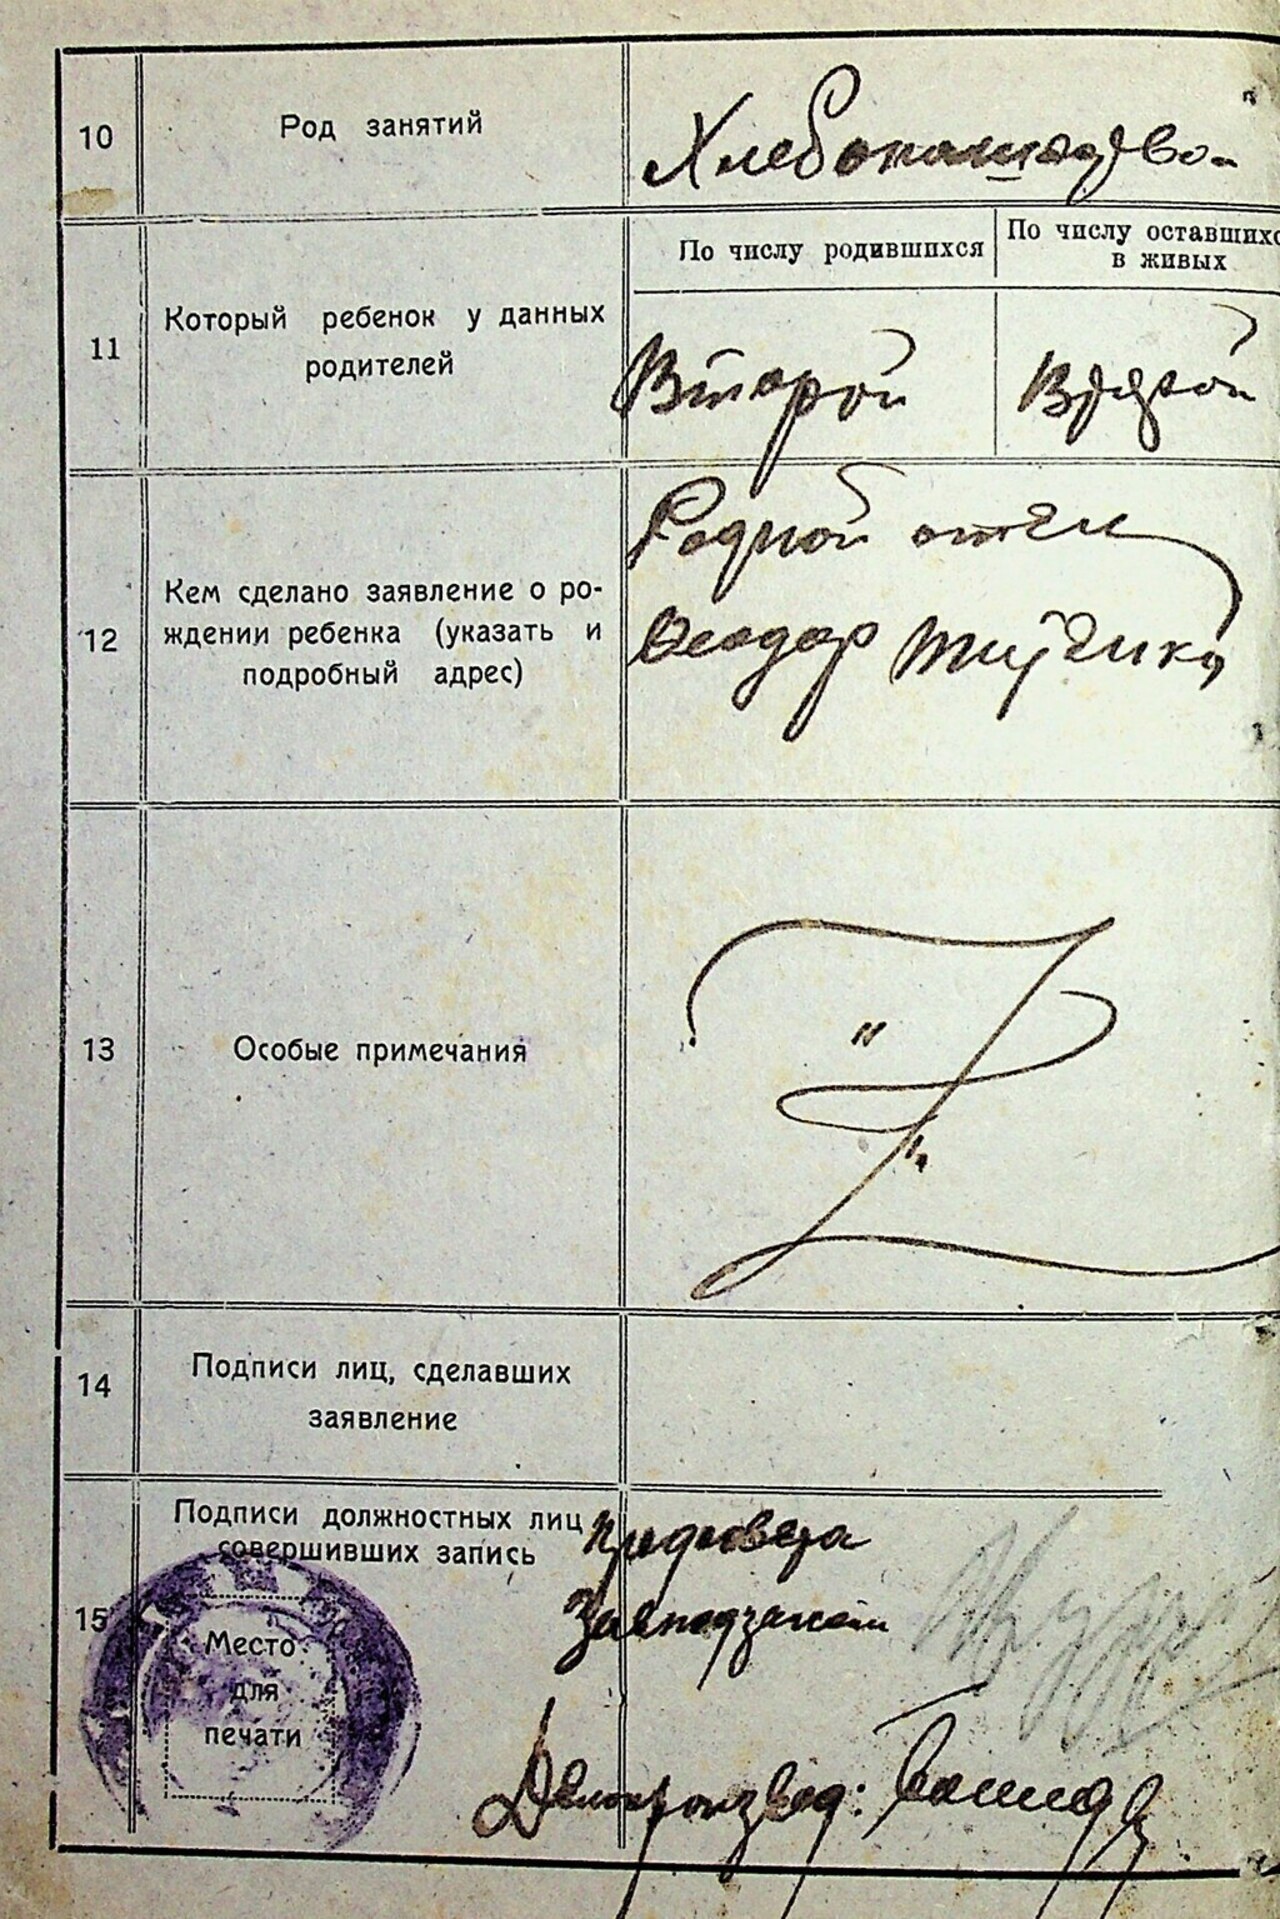 10 Род занятий Хлебопашество
По числу родившихся По числу оставшихс
в живых
11 Который ребенок у данных
родителей
Второй Второй
12 Кем сделано заявление о ро-
ждении ребенка (указать и
подробный адрес)
Родной отец
Феодор
13 Особые примечания
" "
14 Подписи лиц, сделавших
заявление
15 Подписи должностных лиц
совершивших запись
Место
для
печати
Предсовета
Делопроизвод: